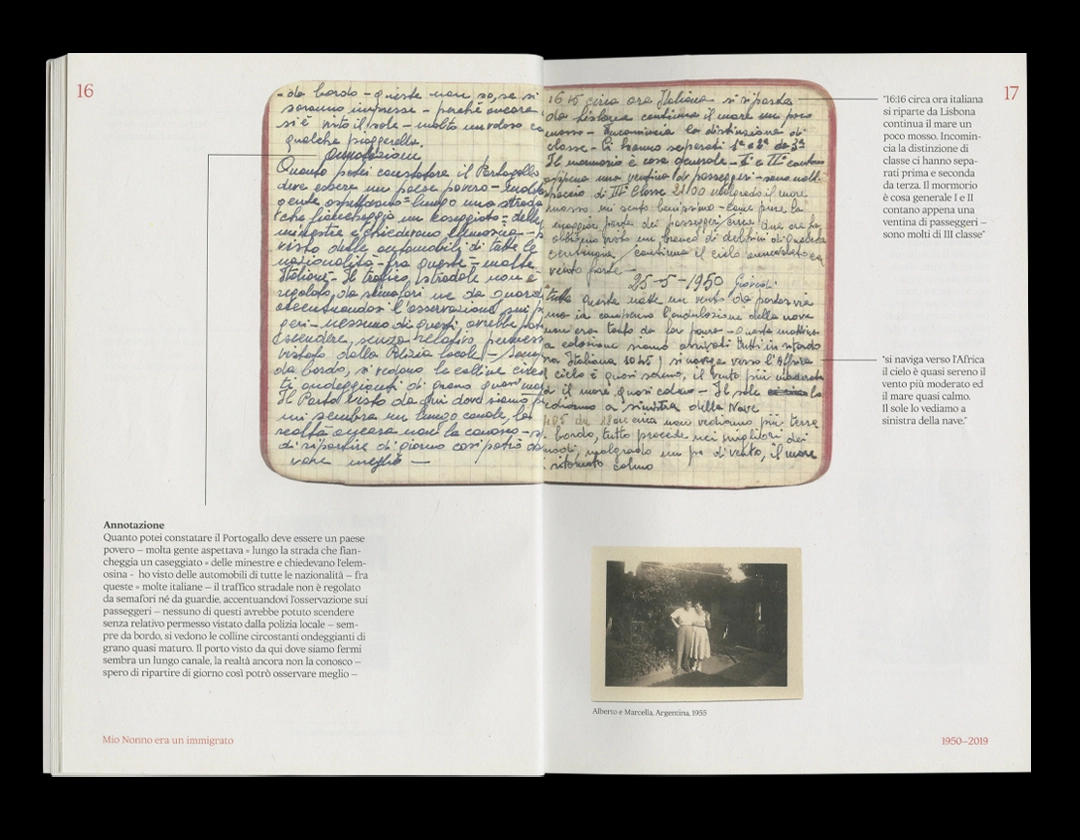 16
- da bordo - queste non so, se si
saranno impresse - perché ancora
si è visto il sole - molto nuvoloso
qualche pioggerella.
Annotazioni
Quanto potei constatare il Portogallo
deve essere un paese povero - molta
gente aspettava = lungo una strada
che fiancheggia un caseggiato = delle
minestre e chiedevano l'elemosina -
visto delle automobili di tutte le
nazionalità - fra queste = molte
Italiane - Il traffico stradale non è
regolato da semafori ne da guardi
accentuandosi l'osservazione sui
geri - nessuno di questi avrebbe
scendere, senza relativo permesso
vistato dalla Polizia locale -
da bordo, si vedono le colline
ti ondeggianti di grano quasi
Il Porto visto da qui dove siamo
mi sembra un lungo canale, la
realtà ancora non la conosco -
di ripartire di giorno così potrò
vare meglio -
Annotazione
Quanto potei constatare il Portogallo deve essere un paese
povero – molta gente aspettava = lungo la strada che fian-
cheggia un caseggiato = delle minestre e chiedevano l'elem-
osina - ho visto delle automobili di tutte le nazionalità – fra
queste = molte italiane – il traffico stradale non è regolato
da semafori né da guardie, accentuandovi l'osservazione sui
passeggeri – nessuno di questi avrebbe potuto scendere
senza relativo permesso vistato dalla polizia locale – sem-
pre da bordo, si vedono le colline circostanti ondeggianti di
grano quasi maturo. Il porto visto da qui dove siamo fermi
sembra un lungo canale, la realtà ancora non la conosco –
spero di ripartire di giorno così potrò osservare meglio –
Mio Nonno era un immigrato
17
circa ora Italiana si riparte
da Lisbona continua il mare un poco
mosso - Incomincia la distinzione di
classe - Ci hanno separati 1ª e 2ª da 3ª
Il mormorio è cosa generale - Iª e IIª contano
appena una ventina di passeggeri - sono molti
di IIIª Classe 21.00 malgrado il mare
mosso, mi sento benissimo - come pure la
maggior parte dei passeggeri
abbiamo visto un branco di delfini di
continua il cielo annuvolato
vento forte -
25-5-1950 Giovedì
tutta questa notte un vento da portar via
ma in compenso l'ondulazione della nave
non era tanto da far paura - Questa mattina
a colazione siamo arrivati tutti in ritardo
Italiana si naviga verso l'Affrica
cielo è quasi sereno, il vento più moderato
il mare quasi calmo - Il sole lo
vediamo a sinistra della Nave
non vediamo più terra
bordo, tutto procede nei migliori dei
modi, malgrado un po di vento, il mare
ritornato calmo
"16:16 circa ora italiana
si riparte da Lisbona
continua il mare un
poco mosso. Incomin-
cia la distinzione di
classe ci hanno sepa-
rati prima e seconda
da terza. Il mormorio
è cosa generale I e II
contano appena una
ventina di passeggeri –
sono molti di III classe"
"si naviga verso l'Africa
il cielo è quasi sereno il
vento più moderato ed
il mare quasi calmo.
Il sole lo vediamo a
sinistra della nave."
Alberto e Marcella, Argentina, 1955
1950–2019